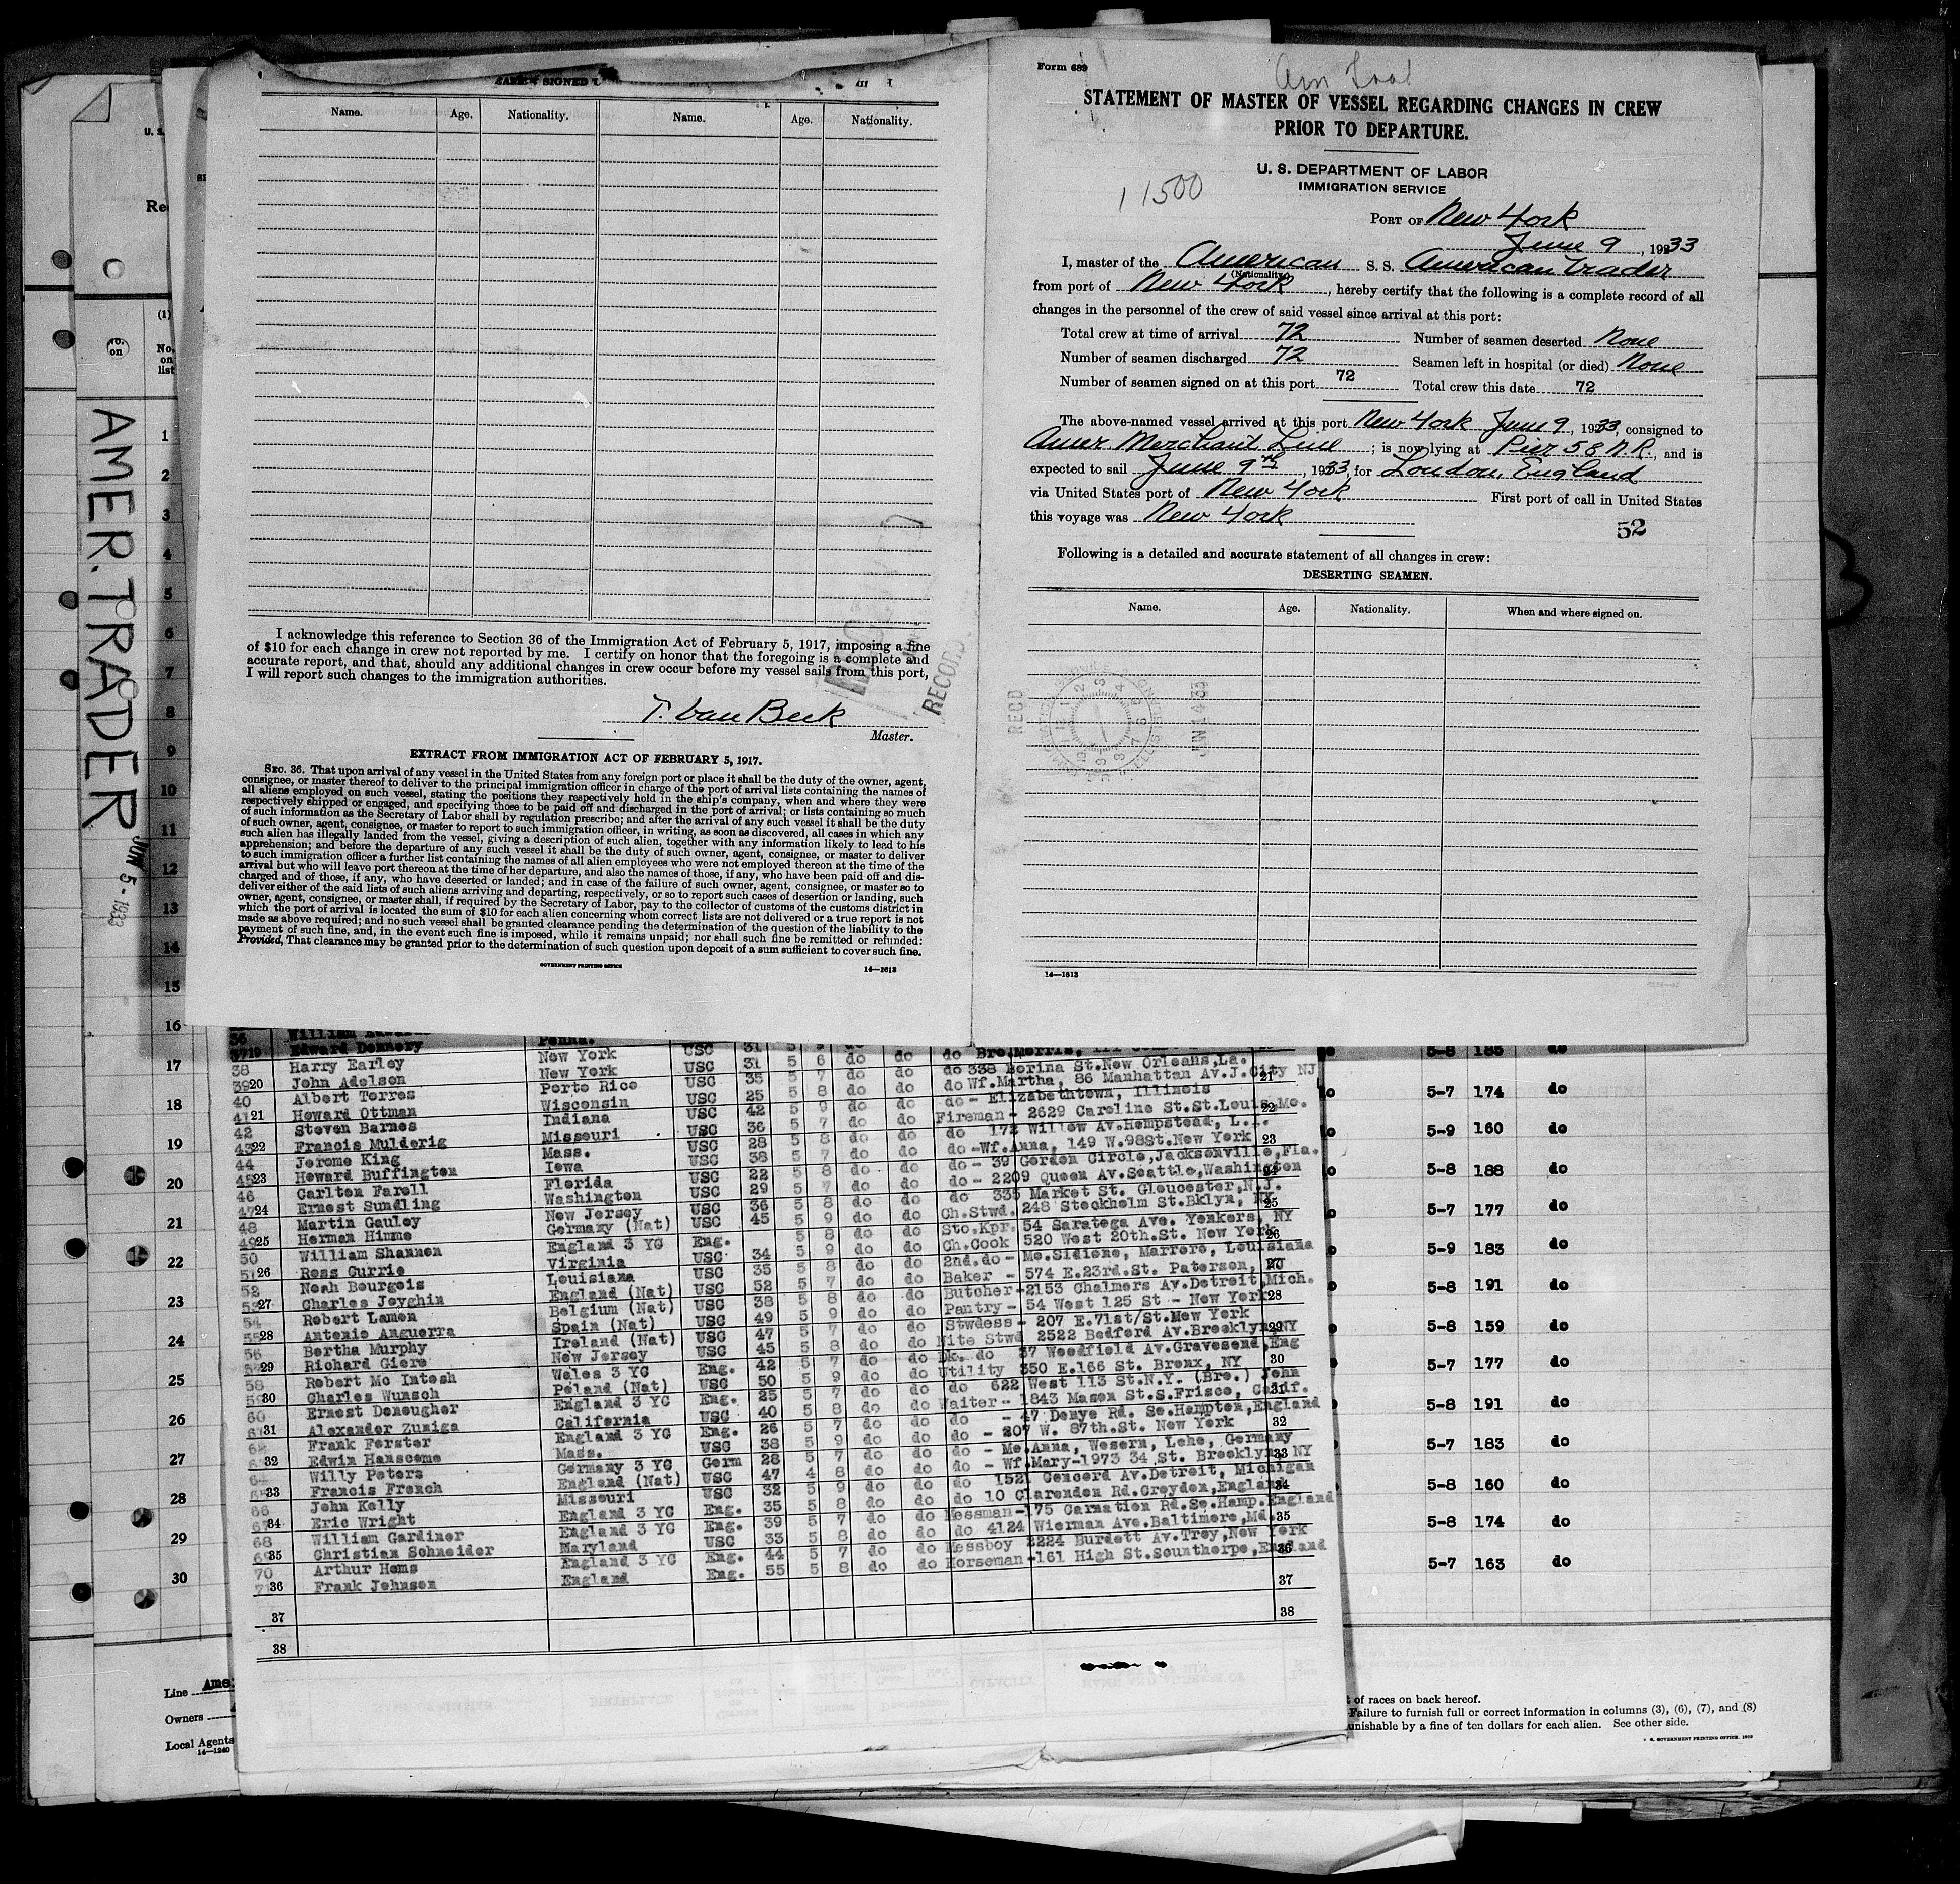 Form 689
Am Trad
STATEMENT OF MASTER OF VESSEL REGARDING CHANGES IN CREW
PRIOR TO DEPARTURE.
U. S. DEPARTMENT OF LABOR
IMMIGRATION SERVICE
11500
PORT OF New York
June 9, 1933
I, master of the American S. S. American Trader
(Nationality)
from port of New York, hereby certify that the following is a complete record of all
changes in the personnel of the crew of said vessel since arrival at this port:
Total crew at time of arrival 72 Number of seamen deserted None
Number of seamen discharged 72 Seamen left in hospital (or died) None
Number of seamen signed on at this port 72 Total crew this date 72
The above-named vessel arrived at this port New York June 9, 1933, consigned to
Amer Merchant Line; is now lying at Pier 58 N.R., and is
expected to sail June 9th, 1933, for London, England
via United States port of New York First port of call in United States
this voyage was New York
52
Following is a detailed and accurate statement of all changes in crew:
DESERTING SEAMEN.
Name. Age. Nationality. When and where signed on.
RECD
JUN 14 33
14—1613
Name. Age. Nationality. Name. Age. Nationality.
I acknowledge this reference to Section 36 of the Immigration Act of February 5, 1917, imposing a fine
of $10 for each change in crew not reported by me. I certify on honor that the foregoing is a complete and
accurate report, and that, should any additional changes in crew occur before my vessel sails from this port,
I will report such changes to the immigration authorities.
RECORD
T. Van Beek
Master.
EXTRACT FROM IMMIGRATION ACT OF FEBRUARY 5, 1917.
SEC. 36. That upon arrival of any vessel in the United States from any foreign port or place it shall be the duty of the owner, agent,
consignee, or master thereof to deliver to the principal immigration officer in charge of the port of arrival lists containing the names of
all aliens employed on such vessel, stating the positions they respectively hold in the ship's company, when and where they were
respectively shipped or engaged, and specifying those to be paid off and discharged in the port of arrival; or lists containing so much
of such information as the Secretary of Labor shall by regulation prescribe; and after the arrival of any such vessel it shall be the duty
of such owner, agent, consignee, or master to report to such immigration officer, in writing, as soon as discovered, all cases in which any
such alien has illegally landed from the vessel, giving a description of such alien, together with any information likely to lead to his
apprehension; and before the departure of any such vessel it shall be the duty of such owner, agent, consignee, or master to deliver
to such immigration officer a further list containing the names of all alien employees who were not employed thereon at the time of the
arrival but who will leave port thereon at the time of her departure, and also the names of those, if any, who have been paid off and dis-
charged and of those, if any, who have deserted or landed; and in case of the failure of such owner, agent, consignee, or master so to
deliver either of the said lists of such aliens arriving and departing, respectively, or so to report such cases of desertion or landing, such
owner, agent, consignee, or master shall, if required by the Secretary of Labor, pay to the collector of customs of the customs district in
which the port of arrival is located the sum of $10 for each alien concerning whom correct lists are not delivered or a true report is not
made as above required; and no such vessel shall be granted clearance pending the determination of the question of the liability to the
payment of such fine, and, in the event such fine is imposed, while it remains unpaid; nor shall such fine be remitted or refunded:
Provided, That clearance may be granted prior to the determination of such question upon deposit of a sum sufficient to cover such fine.
GOVERNMENT PRINTING OFFICE 14—1613
AMER. TRADER
JUN 5 - 1933
Edward Dennery Penna. USC 31
38 Harry Earley New York USC 31 5 6 do do do 338 Dorina St.New Orleans,La.
39 John Adelson New York USC 35 5 7 do do do Wf.Martha, 86 Manhattan Av.J.City NJ
40 Albert Torres Porto Rico USC 25 5 8 do do do - Elizabethtown, Illinois
41 Howard Ottman Wisconsin USC 42 5 9 do do Fireman - 2629 Caroline St.St.Louis,Mo.
42 Steven Barnes Indiana USC 36 5 7 do do do 172 Willow Av.Hempstead, L.I.
43 Francis Mulderig Missouri USC 28 5 8 do do do -Wf.Anna, 149 W.98St.New York
44 Jerome King Mass. USC 38 5 7 do do do - 39 Gorden Circle,Jacksonville,Fla.
45 Howard Buffington Iowa USC 22 5 8 do do do - 2209 Queen Av.Seattle,Washington
46 Carlton Farell Florida USC 29 5 7 do do do 335 Market St. Gloucester,N.J.
47 Ernest Sundling Washington USC 36 5 8 do do Ch.Stwd. 248 Stockholm St.Bklyn, NY
48 Martin Gauley New Jersey USC 45 5 9 do do Sto.Kpr. 54 Saratoga Ave. Yonkers, NY
49 Herman Himme Germany (Nat) USC 5 8 do do Ch.Cook 520 West 20th.St. New York
50 William Shannon England 3 YC Eng. 34 5 9 do do 2nd.do - Mo.Sidione, Marrero, Louisiana
51 Ross Currie Virginia USC 35 5 8 do do Baker - 574 E.23rd.St. Paterson, NJ
52 Noah Bourgois Louisiana USC 52 5 7 do do Butcher-2153 Chalmers Av.Detroit,Mich.
53 Charles Joyghin England (Nat) USC 38 5 8 do do Pantry - 54 West 125 St - New York
54 Robert Lamon Belgium (Nat) USC 49 5 9 do do Stwdess - 207 E.71st/St.New York
55 Antonio Anguerra Spain (Nat) USC 47 5 7 do do Nite Stwd 2522 Bedford Av.Brooklyn,NY
56 Bertha Murphy Ireland (Nat) USC 45 5 8 do do Dk. do 37 Woodfield Av.Gravesend,Eng
Richard Giere New Jersey USC 42 5 7 do do Utility 350 E.166 St. Bronx, NY
58 Robert Mc Intosh Wales 3 YC Eng. 50 5 9 do do do 622 West 113 St.N.Y. (Bro.) John
Charles Wunsch Poland (Nat) USC 25 5 7 do do Waiter - 1843 Mason St.S.Frisco, Calif.
60 Ernest Doneugher England 3 YC Eng. 40 5 8 do do do - 47 Denye Rd. So.Hampton,England
61 Alexander Zuniga California USC 26 5 7 do do do - 207 W. 87th.St. New York
62 Frank Forster England 3 YC Eng. 38 5 9 do do do - Mo.Anna, Wesern, Lehe, Germany
Edwin Hanscome Mass. USC 28 5 7 do do do - Wf.Mary-1973 34 St. Brooklyn, NY
Willy Peters Germany 3 YC Germ 47 4 8 do do do 1521 Concord Av.Detroit, Michigan
Francis French England (Nat) USC 32 5 9 do do do 10 Clarendon Rd.Croydon,England
66 John Kelly Missouri USC 35 5 8 do do Messman-175 Carnation Rd.So.Hamp.England
Eric Wright England 3 YC Eng. 39 5 7 do do do 4124 Wierman Ave.Baltimore,Md.
68 William Gardiner England 3 YC Eng. 33 5 8 do do Messboy 2224 Burdett Av.Troy,New York
Christian Schneider Maryland USC 44 5 7 do do Horseman-161 High St.Scunthorpe,England
70 Arthur Hems England 3 YC Eng. 55 5 8 do do
Frank Johnson England Eng.
37
38
5-8 185 do
5-7 174 do
5-9 160 do
5-8 188 do
5-7 177 do
5-9 183 do
5-8 191 do
5-8 159 do
5-7 177 do
5-8 191 do
5-7 183 do
5-8 160 do
5-8 174 do
5-7 163 do
Line Ame
Owners
Local Agents
14—1240
t of races on back hereof.
Failure to furnish full or correct information in columns (3), (6), (7), and (8)
unishable by a fine of ten dollars for each alien. See other side.
GOVERNMENT PRINTING OFFICE